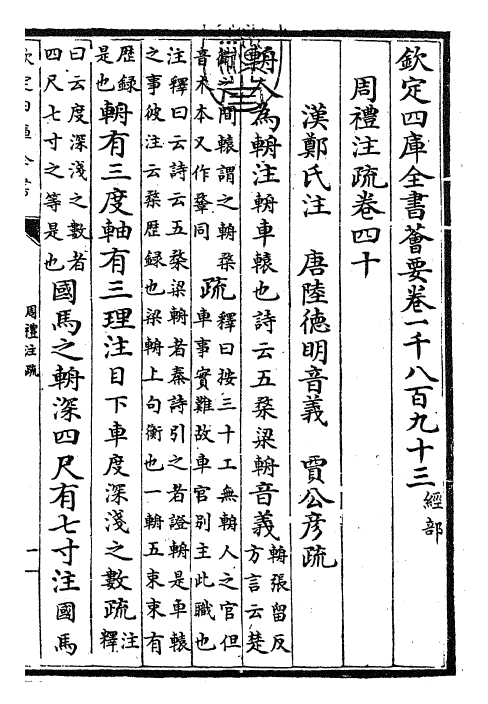 欽定四庫全書薈要卷一千八百九十三 經部
周禮注疏卷四十
漢鄭氏注 唐陸德明音義 賈公彦疏
輈人為輈注輈車轅也詩云五楘梁輈音義輈張留反方言云楚
衛之間轅謂之輈楘音木本又作鞪同 疏釋曰按三十工無輈人之官但車事實難故車官别主此職也
注釋曰云詩云五楘梁輈者秦詩引之者證輈是車轅之事彼注云楘歴録也梁輈上句衡也一輈五束束有
歴録是也輈有三度軸有三理注目下車度深淺之數疏注釋
曰云度深淺之數者四尺七寸之等是也國馬之輈深四尺有七寸注國馬
周禮注疏
一